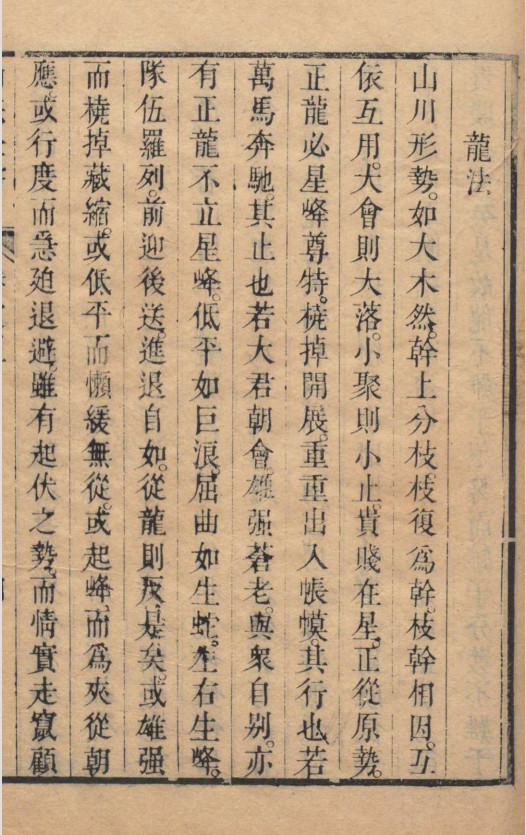 龍法
山川形勢。如大木然。幹上分枝枝復爲幹。枝幹相因。互
依互用。大會則大落。小聚則小止。貴賤在星。正從原勢。
正龍必星峰尊特。橈掉開展。重重出入帳幙。其行也若
萬馬奔馳。其止也若大君朝會。雄强蒼老。與衆自别。亦
有正龍不立星峰。低平如巨浪。屈曲如生蛇。左右生峰。
隊伍羅列。前迎後送。進退自如。從龍則反是矣。或雄强
而橈掉藏縮。或低平而懶緩無從。或起峰。而爲夾從朝
應。或行度而急廹退避。雖有起伏之勢。而情實走竄顧